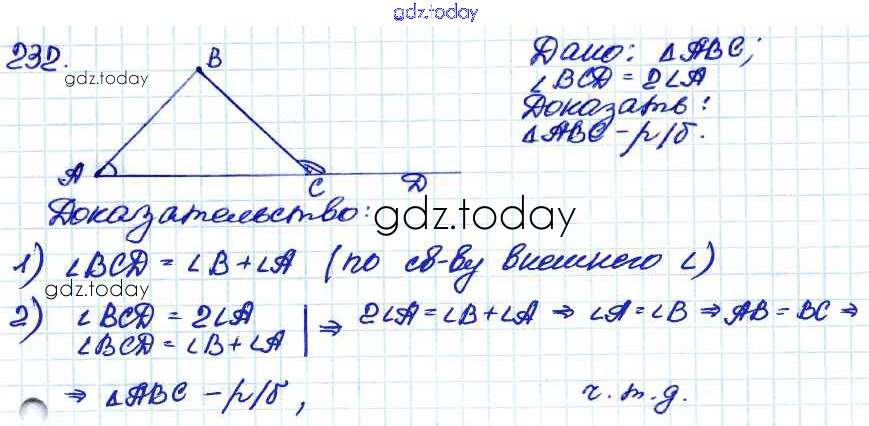 gdz.today
232.
B
Дано: △ABC;
gdz.today
∠BCD = 2∠A
Доказать:
△ABC – р/б.
A
C
D
Доказательство:
gdz.today
1) ∠BCD = ∠B + ∠A (по св-ву внешнего ∠)
gdz.today
2) ∠BCD = 2∠A
∠BCD = ∠B + ∠A
⇒ 2∠A = ∠B + ∠A ⇒ ∠A = ∠B ⇒ AB = BC ⇒
⇒ △ABC – р/б, ч.т.д.